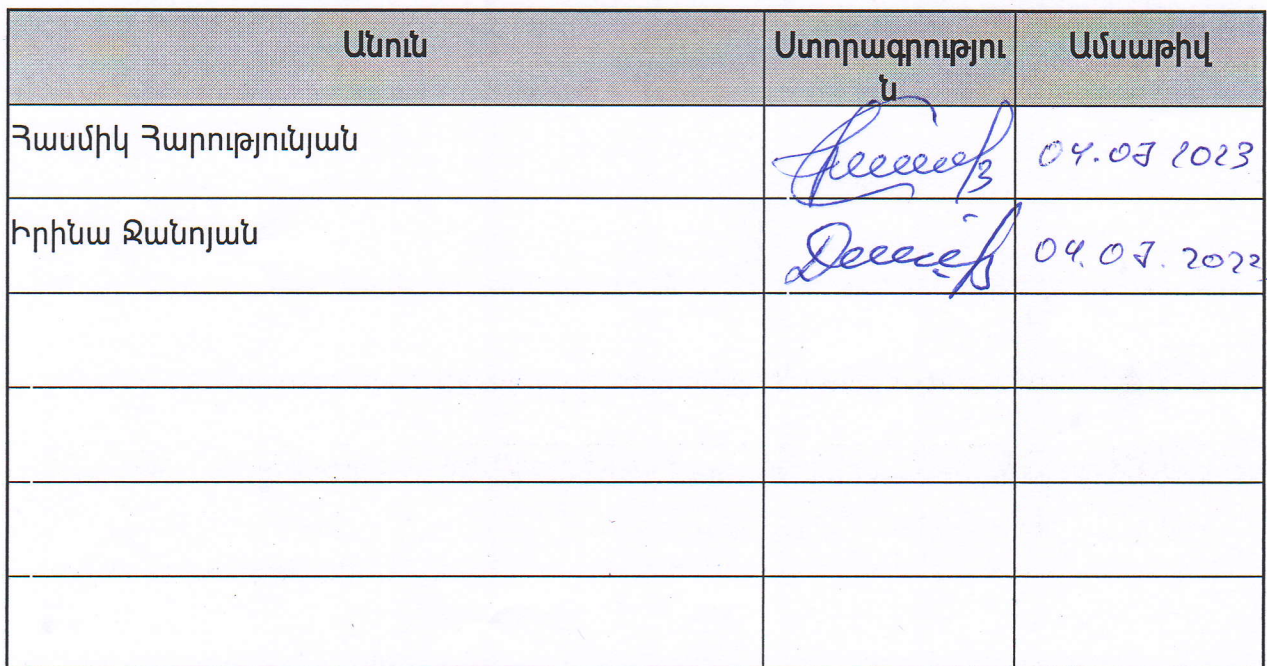 Անուն
Ստորագրությու
ն
Ամսաթիվ
Հասմիկ Հարությունյան
04.07 2023
Իրինա Ջանոյան
04.07.2022